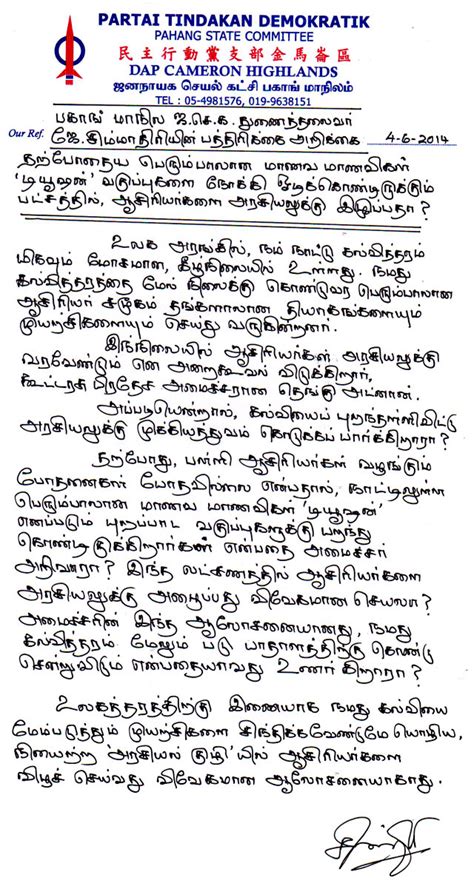 PARTAI TINDAKAN DEMOKRATIK
PAHANG STATE COMMITTEE
民主行動黨支部金馬崙區
DAP CAMERON HIGHLANDS
ஜனநாயக செயல் கட்சி பகாங் மாநிலம்
TEL : 05-4981576, 019-9638151
பகாங் மாநில ஜ.செ.க. துணைத்தலைவர்
Our Ref. ஜே.சிம்மாதிரியின் பத்திரிக்கை அறிக்கை 4-6-2014
தற்போதைய பெரும்பாலான மாணவ மாணவிகள்
'டியூஷன்' வகுப்புகளை நோக்கி ஓடிக்கொண்டிருக்கும்
பட்சத்தில், ஆசிரியர்களை அரசியலுக்கு இழுப்பதா?
உலக அரங்கில், நம் நாட்டு கல்வித்தரம்
மிகவும் மோசமான, கீழ்நிலையில் உள்ளது. நமது
கல்வித்தரத்தை மேல் நிலைக்கு கொண்டுவர பெரும்பாலான
ஆசிரியர் சமூகம் தங்களாலான தியாகங்களையும்
முயற்சிகளையும் செய்து வருகின்றனர்.
இந்நிலையில் ஆசிரியர்கள் அரசியலுக்கு
வரவேண்டும் என அறைகூவல் விடுக்கிறார்,
கூட்டரசு பிரதேச அமைச்சரான தெங்கு அட்னான்.
அப்படியென்றால், கல்வியைப் புறந்தள்ளிவிட்டு
அரசியலுக்கு முக்கியத்துவம் கொடுக்கப் பார்க்கிறாரா?
தற்போது, பள்ளி ஆசிரியர்கள் வழங்கும்
போதனைகள் போதவில்லை என்பதால், நாட்டிலுள்ள
பெரும்பாலான மாணவ மாணவிகள் 'டியூஷன்'
எனப்படும் புறப்பாட வகுப்புகளுக்கு பறந்து
கொண்டிருக்கிறார்கள் என்பதை அமைச்சர்
அறிவாரா? இந்த லட்சணத்தில் ஆசிரியர்களை
அரசியலுக்கு அழைப்பது விவேகமான செயலா?
அமைச்சரின் இந்த ஆலோசனையானது, நமது
கல்வித்தரம் மேலும் படு பாதாளத்திற்கு கொண்டு
சென்றுவிடும் என்பதையாவது உணர்கிறாரா?
உலகத்தரத்திற்கு இணையாக நமது கல்வியை
மேம்படுத்தும் முயற்சிகளை சிந்திக்கவேண்டுமே யொழிய,
நிலையற்ற 'அரசியல் குழி'யில் ஆசிரியர்களை
விழச் செய்வது விவேகமான ஆலோசனையாகாது.